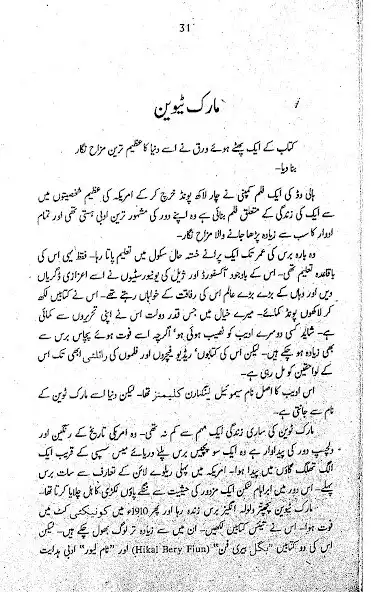 31
مارک ٹیوین
کتاب کے ایک پھٹے ہوئے ورق نے اسے دنیا کا عظیم ترین مزاح نگار
بنا دیا۔
ہالی وڈ کی ایک فلم کمپنی نے چار لاکھ پونڈ خرچ کر کے امریکہ کی عظیم شخصیتوں میں
سے ایک کی زندگی کے متعلق فلم بنائی ہے وہ اپنے دور کی مشہور ترین ادبی ہستی تھی اور تمام
ادوار کا سب سے زیادہ پڑھا جانے والا مزاح نگار۔
وہ بارہ برس کی عمر تک ایک پرانے خستہ حال سکول میں تعلیم پاتا رہا۔ فقط یہی اس کی
باقاعدہ تعلیم تھی۔ اس کے باوجود آکسفورڈ اور ییل کی یونیورسٹیوں نے اسے اعزازی ڈگریاں
دیں اور وہاں کے بڑے بڑے عالم اس کی رفاقت کے خواہاں رہتے تھے۔ اس نے کتابیں لکھ
کر لاکھوں پونڈ کمائے۔ میرے خیال میں جس قدر دولت اس نے اپنی تحریروں سے کمائی
ہے۔ شاید کسی دوسرے ادیب کو نصیب ہوئی ہو، اگرچہ اسے فوت ہوئے پچاس برس سے
بھی زیادہ ہو چکے ہیں۔ لیکن اس کی کتابوں، ریڈیو فیچروں اور فلموں کی رائلٹی ابھی تک اس
کے لواحقین کو مل رہی ہے۔
اس ادیب کا اصل نام سیموئیل لینگہارن کلیمنز تھا۔ لیکن دنیا اسے مارک ٹوین کے
نام سے جانتی ہے۔
مارک ٹوین کی ساری زندگی ایک مہم سے کم نہ تھی۔ وہ امریکی تاریخ کے رنگین اور
دلچسپ دور کی پیداوار ہے وہ ایک سو پچیس برس پہلے دریائے مِسی سِپی کے قریب ایک
الگ تھلگ گاؤں میں پیدا ہوا۔ امریکہ میں پہلی ریلوے لائن کے تعارف سے سات برس
پہلے۔ اس دور میں ابراہام لنکن ایک مزدور کی حیثیت سے ننگے پاؤں لکڑی کا ہل چلایا کرتا تھا۔
مارک ٹوین پچھتر ولولہ انگیز برس زندہ رہا اور پھر 1910ء میں کونیکٹی کٹ میں
فوت ہوا۔ اس نے تیئس کتابیں لکھیں۔ ان میں سے زیادہ تر لوگ بھول چکے ہیں۔ لیکن
اس کی دو کتابیں "ہکل بیری فن" (Hikal Bery Fiun) اور "ٹام سیور" ادبی ہدایت